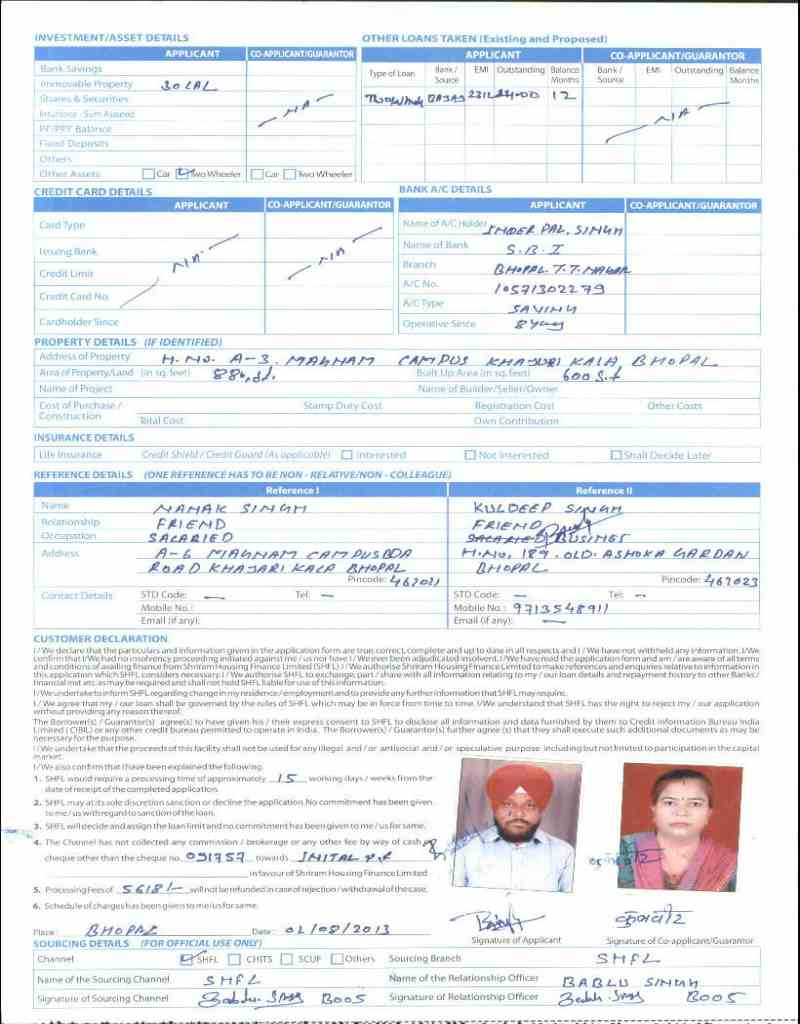 INVESTMENT/ASSET DETAILS
APPLICANT CO-APPLICANT/GUARANTOR
Bank Savings
Immovable Property 30 LAL
Shares & Securities
Insurance - Sum Assured
PF/PPF Balance
Fixed Deposits
Others
Other Assets Car Two Wheeler Car Two Wheeler
NA
OTHER LOANS TAKEN (Existing and Proposed)
APPLICANT CO-APPLICANT/GUARANTOR
Type of Loan Bank / Source EMI Outstanding Balance Months Bank / Source EMI Outstanding Balance Months
BAJAJ 2312 12
NA
CREDIT CARD DETAILS
APPLICANT CO-APPLICANT/GUARANTOR
Card Type
Issuing Bank
Credit Limit
Credit Card No.
Cardholder Since
NA NA
BANK A/C DETAILS
APPLICANT CO-APPLICANT/GUARANTOR
Name of A/C Holder INDER PAL. SINGH
Name of Bank S.B.I
Branch BHOPAL T.T. NAGAR
A/C No. 10571302279
A/C Type SAVING
Operative Since 8 Years
PROPERTY DETAILS (IF IDENTIFIED)
Address of Property H. NO. A-3. MAGNAM CAMPUS KHAJURI KALA BHOPAL
Area of Property/Land (in sq. feet) Built Up Area (in sq. feet) 600 S.f
Name of Project Name of Builder/Seller/Owner
Cost of Purchase / Construction Stamp Duty Cost Registration Cost Other Costs
Total Cost Own Contribution
INSURANCE DETAILS
Life Insurance Credit Shield / Credit Guard (As applicable) Interested Not Interested Shall Decide Later
REFERENCE DETAILS (ONE REFERENCE HAS TO BE NON - RELATIVE/NON - COLLEAGUE)
Reference I Reference II
Name NANAK SINGH KULDEEP SINGH
Relationship FRIEND FRIEND
Occupation SALARIED SALARIED BUSINES
Address A-6 MAGNAM CAMPUS BDA H.NO. 189. OLD. ASHOKA GARDAN
ROAD KHAJARI KALA BHOPAL BHOPAL
Pincode: 462021 Pincode: 462023
Contact Details STD Code: — Tel: — STD Code: — Tel: —
Mobile No.: Mobile No.: 9713548911
Email (if any): Email (if any): —
CUSTOMER DECLARATION
I / We declare that the particulars and information given in the application form are true, correct, complete and up to date in all respects and I / We have not withheld any information. I/We
confirm that I/We had no insolvency proceeding initiated against me / us nor have I / We ever been adjudicated insolvent. I / We have read the application form and am / are aware of all terms
and conditions of availing finance from Shriram Housing Finance Limited (SHFL). I / We authorise Shriram Housing Finance Limited to make references and enquiries relative to information in
this application which SHFL considers necessary. I / We authorise SHFL to exchange, part / share with all information relating to my / our loan details and repayment history to other Banks /
financial inst etc. as may be required and shall not hold SHFL liable for use of this information.
I / We undertake to inform SHFL regarding change in my residence / employment and to provide any further information that SHFL may require.
I / We agree that my / our loan shall be governed by the rules of SHFL which may be in force from time to time. I/We understand that SHFL has the right to reject my / our application
without providing any reason thereof.
The Borrower(s) / Guarantor(s) agree(s) to have given his / their express consent to SHFL to disclose all information and data furnished by them to Credit Information Bureau India
Limited ( CIBIL) or any other credit bureau permitted to operate in India. The Borrower(s) / Guarantor(s) further agree (s) that they shall execute such additional documents as may be
necessary for the purpose.
I / We undertake that the proceeds of this facility shall not be used for any illegal and / or antisocial and / or speculative purpose including but not limited to participation in the capital
market.
I / We also confirm that I have been explained the following.
1. SHFL would require a processing time of approximately 15 working days / weeks from the
date of receipt of the completed application.
2. SHFL may at its sole discretion sanction or decline the application. No commitment has been given
to me / us with regard to sanction of the loan.
3. SHFL will decide and assign the loan limit and no commitment has been given to me / us for same.
4. The Channel has not collected any commission / brokerage or any other fee by way of cash
cheque other than the cheque no. 091757 towards INITAL P.F
in favour of Shriram Housing Finance Limited
5. Processing Fees of 5618/- will not be refunded in case of rejection / withdrawal of the case.
6. Schedule of charges has been given to me/us for same.
Place: BHOPAL Date: 02/08/2013 Signature of Applicant Signature of Co-applicant/Guarantor
SOURCING DETAILS (FOR OFFICIAL USE ONLY)
Channel SHFL CHITS SCUF Others Sourcing Branch SHFL
Name of the Sourcing Channel SHFL Name of the Relationship Officer BABLU SINGH
Signature of Sourcing Channel B005 Signature of Relationship Officer B005